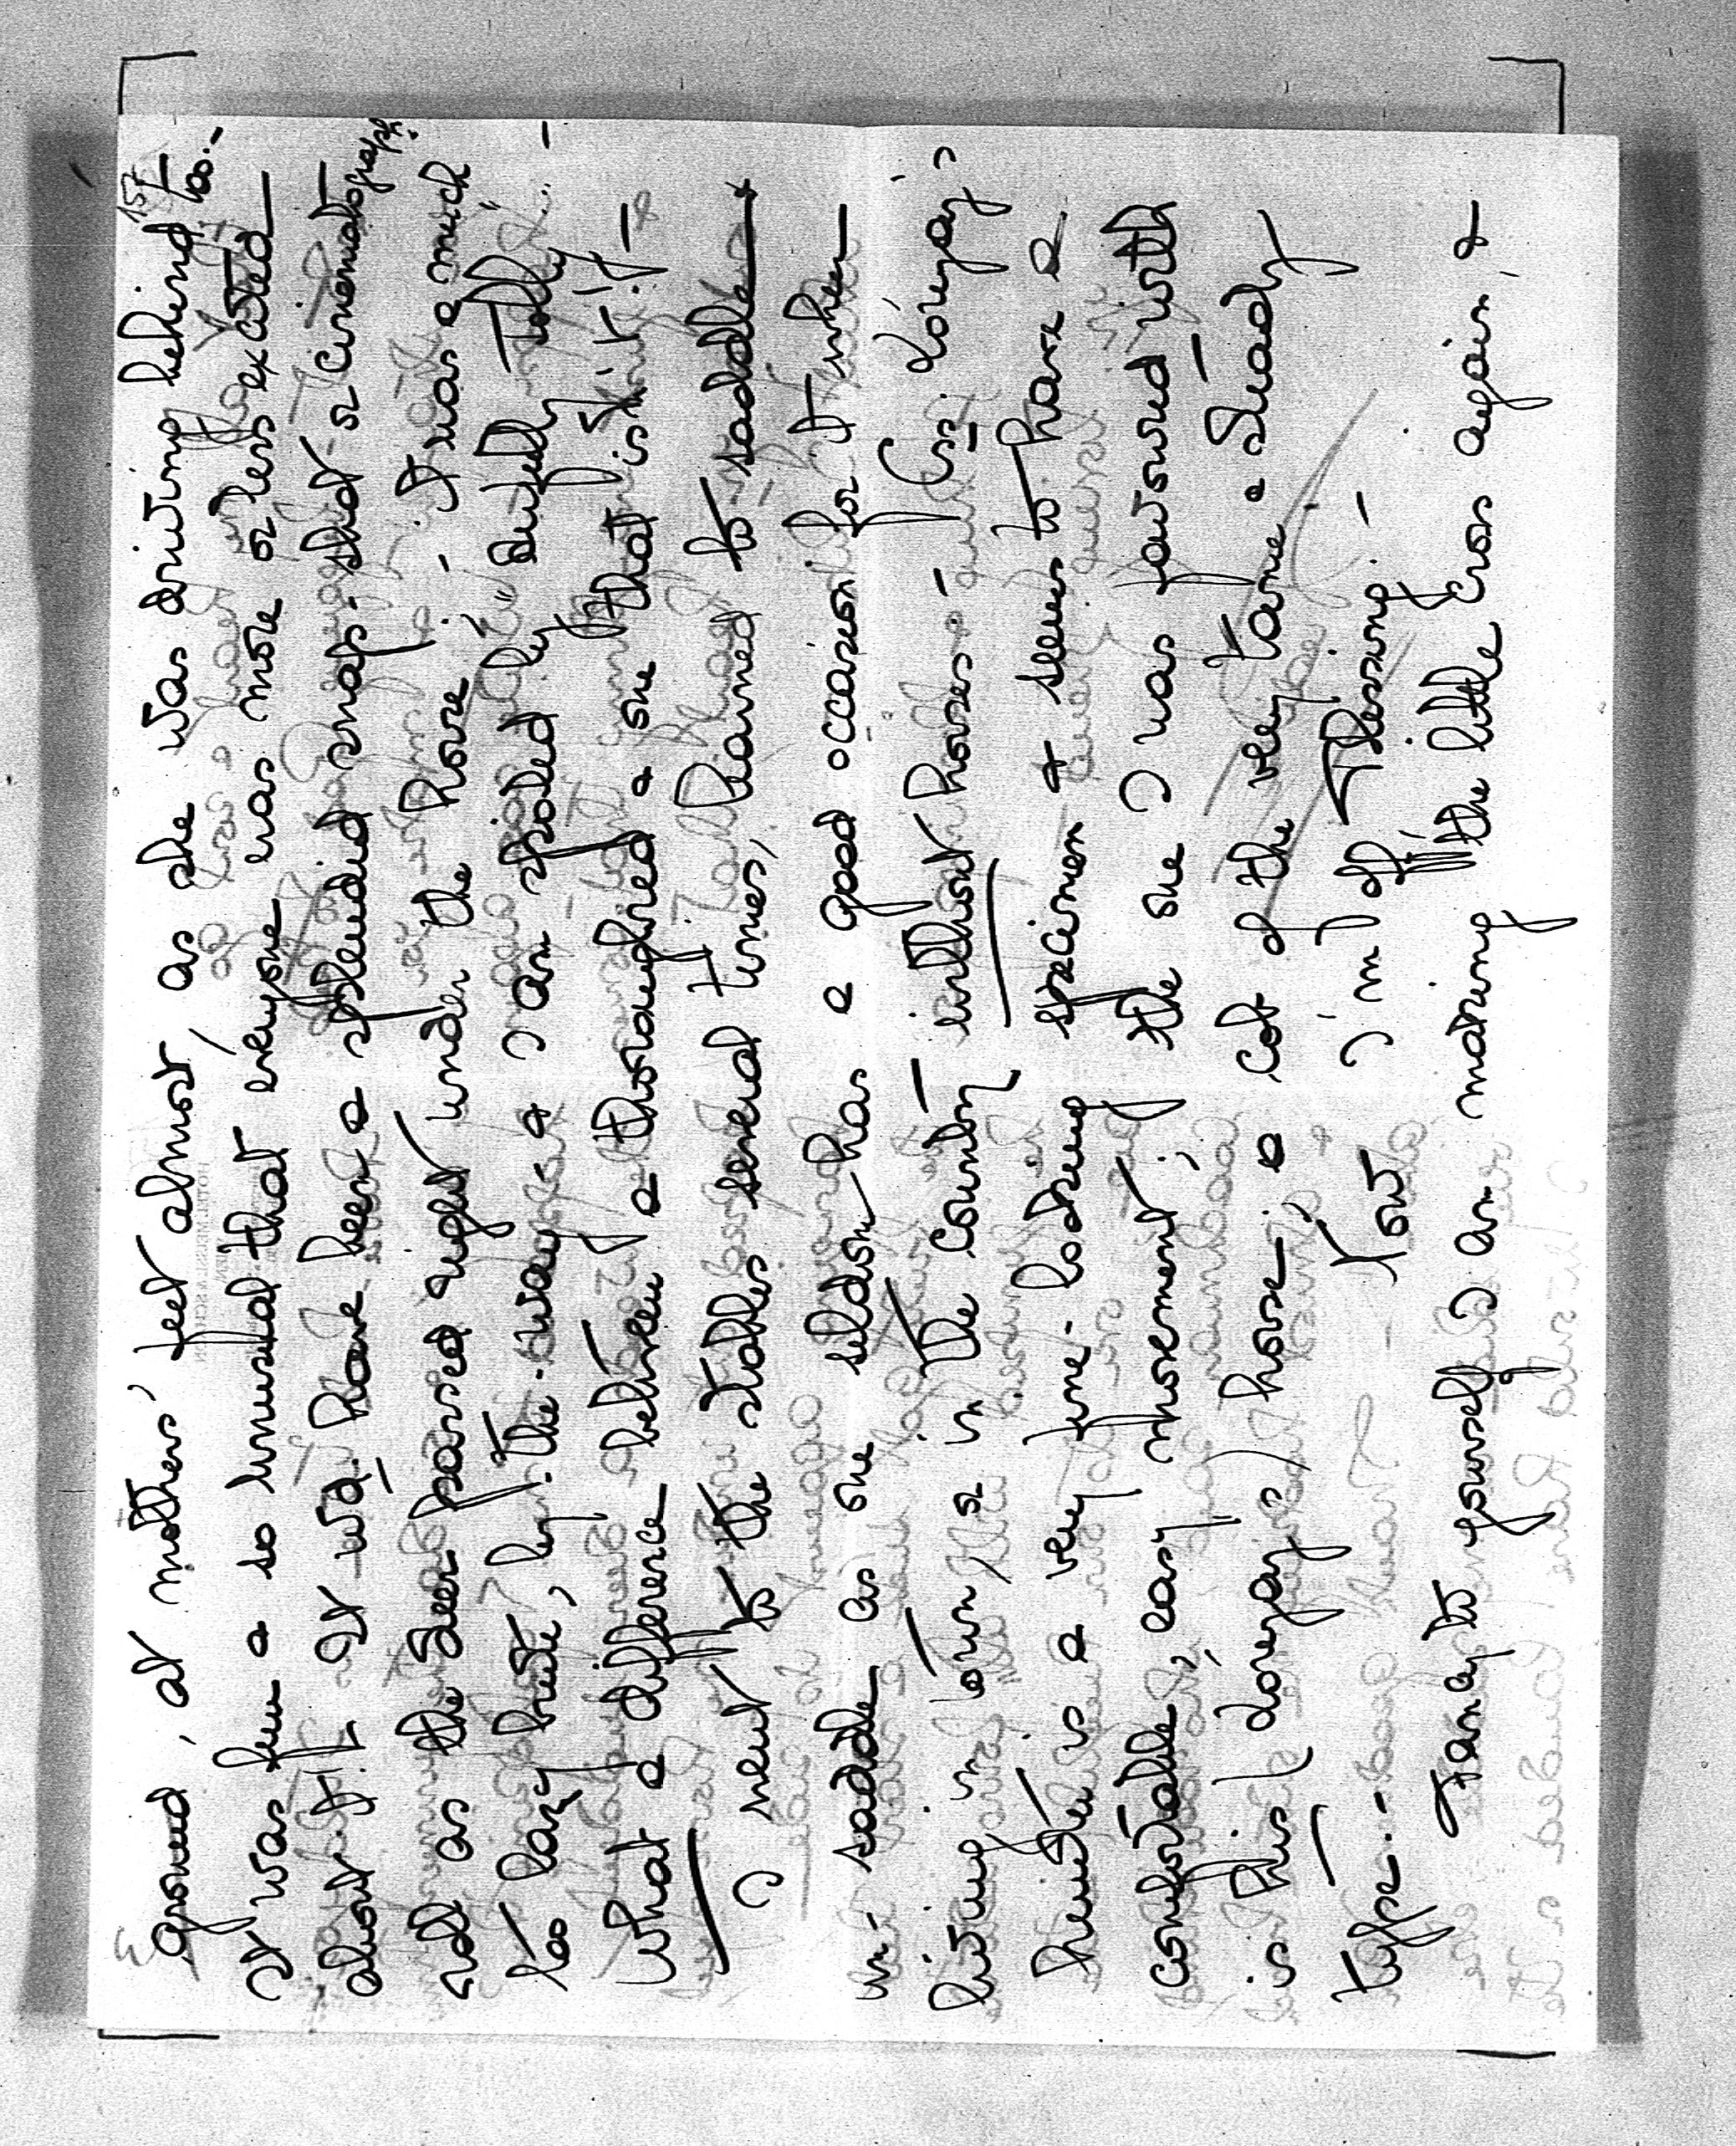 157
3
ground, at mothers' feet almost, as she was driving behind too.-
It was fun & so unusual that everyone was more or less excited
about it!- It wd. have been a splendid snap-shot or cinematograph.
roll as the deer passed right under the horse!- It was a much
too lazy brute, by-the-way & I am spoiled by "Bully Tolly" -
What a difference between a thoroughbred & one that isn't!-
I went to the stables several times, learned to saddle &
un-saddle as one seldom has a good occasion for it when
living in town, or in the country without horses.-
hunter is a very fine-looking specimen & seems to have a
comfortable, easy movement; the one I was favoured with
is his horse; a cob of the very tame & steady
type.- Your I'm off! Blessing!-
Fancy to yourself I am making the little cross again, &